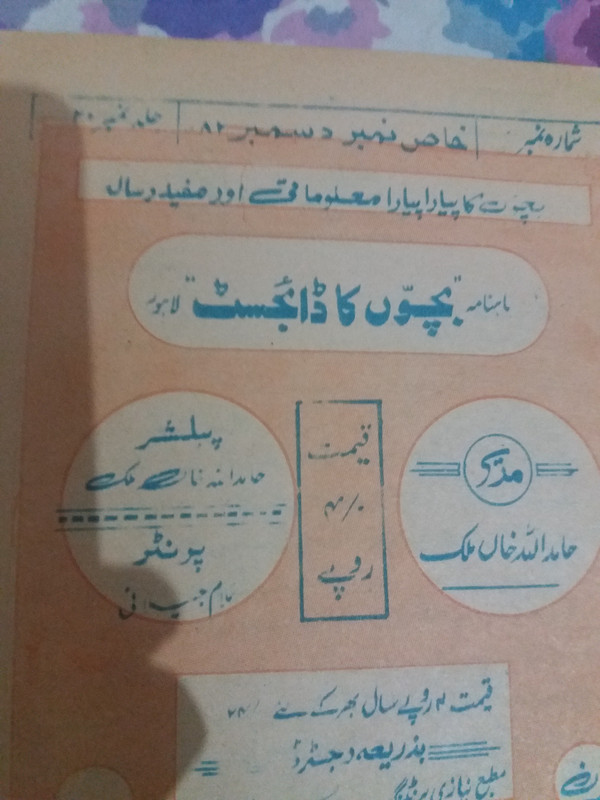 شمارہ نمبر | خاص نمبر دسمبر ۸۲ | جلد نمبر ۲۰
بچوں کا پیارا پیارا معلوماتی اور مفید رسالہ
ماہنامہ "بچّوں کا ڈائجسٹ" لاہور
مدیر
حامد اللہ خاں ملک
قیمت
۴/۰
روپے
پبلشر
حامد اللہ خاں ملک
پرنٹر
قیمت ۴ روپے سال بھر کے لئے
بذریعہ رجسٹرڈ
مطبع نیازی پرنٹنگ